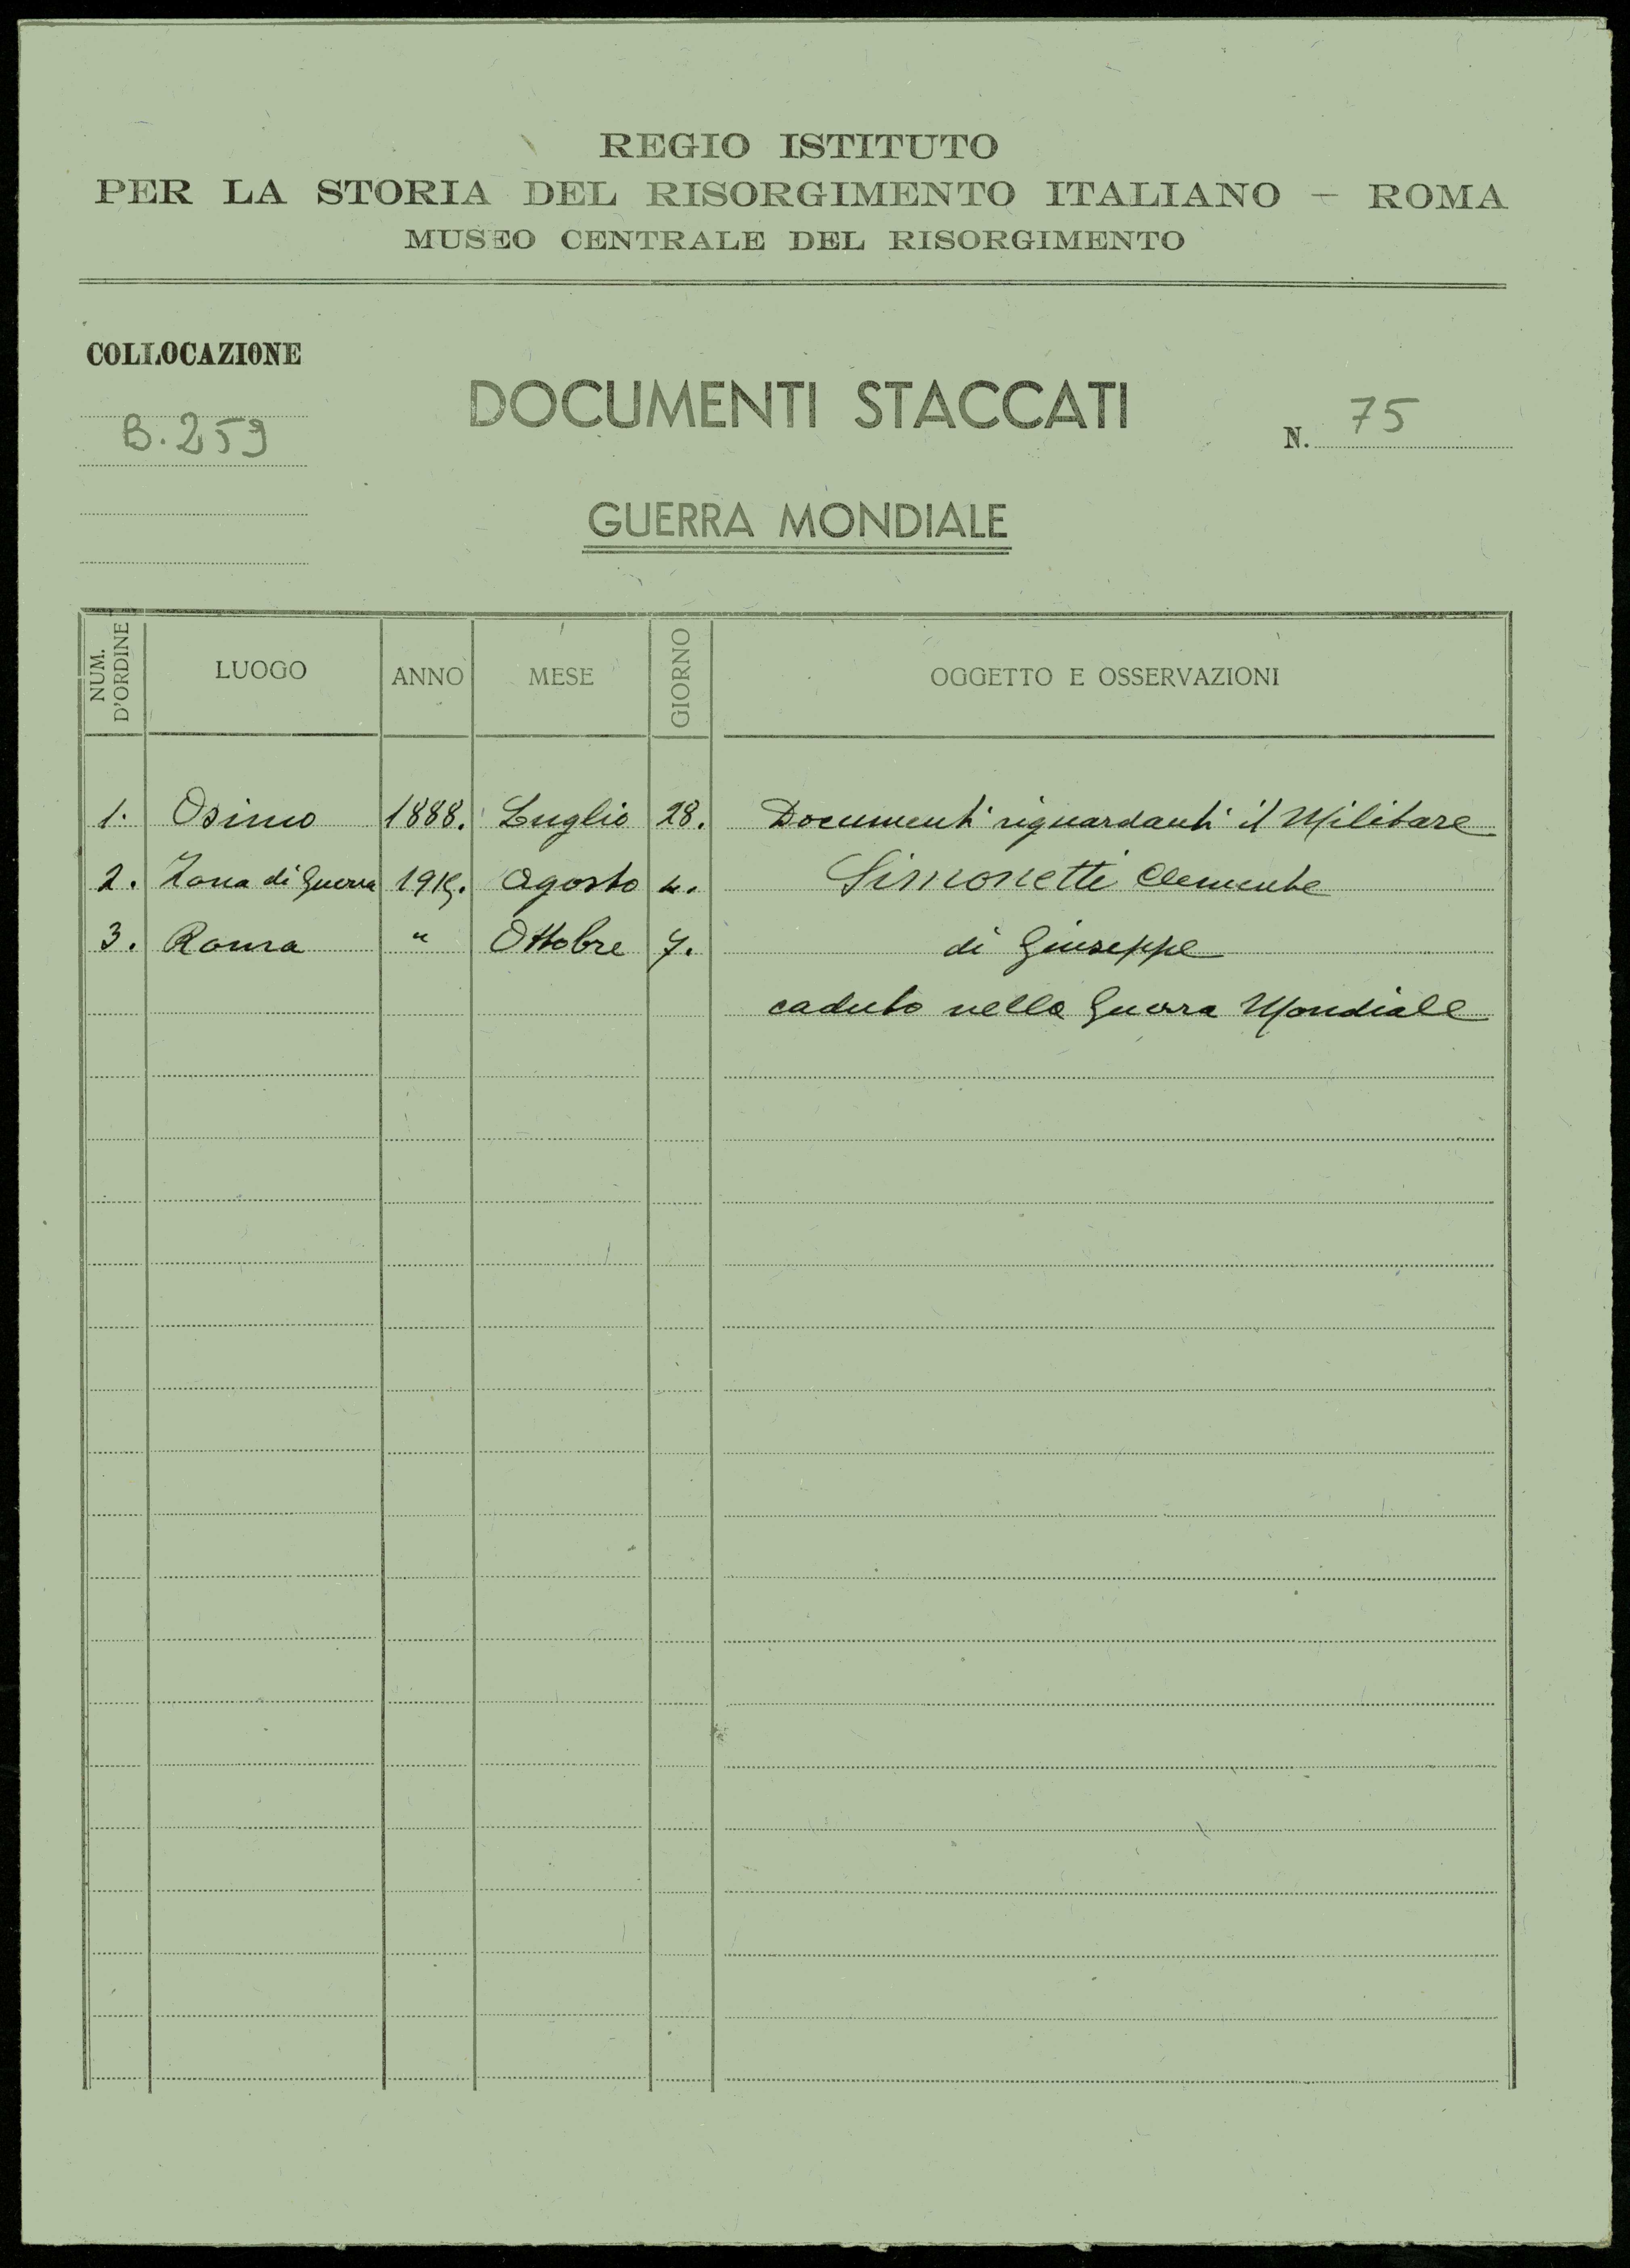 REGIO ISTITUTO
PER LA STORIA DEL RISORGIMENTO ITALIANO – ROMA
MUSEO CENTRALE DEL RISORGIMENTO
COLLOCAZIONE
B. 259
DOCUMENTI STACCATI
N. 75
GUERRA MONDIALE
NUM. D'ORDINE LUOGO ANNO MESE GIORNO OGGETTO E OSSERVAZIONI
1. Osimo 1888. Luglio 28. Documenti riguardanti il Militare
2. Zona di Guerra 1915. Agosto 4. Simonetti Clemente
3. Roma " Ottobre 7. di Giuseppe
caduto nella Guerra Mondiale